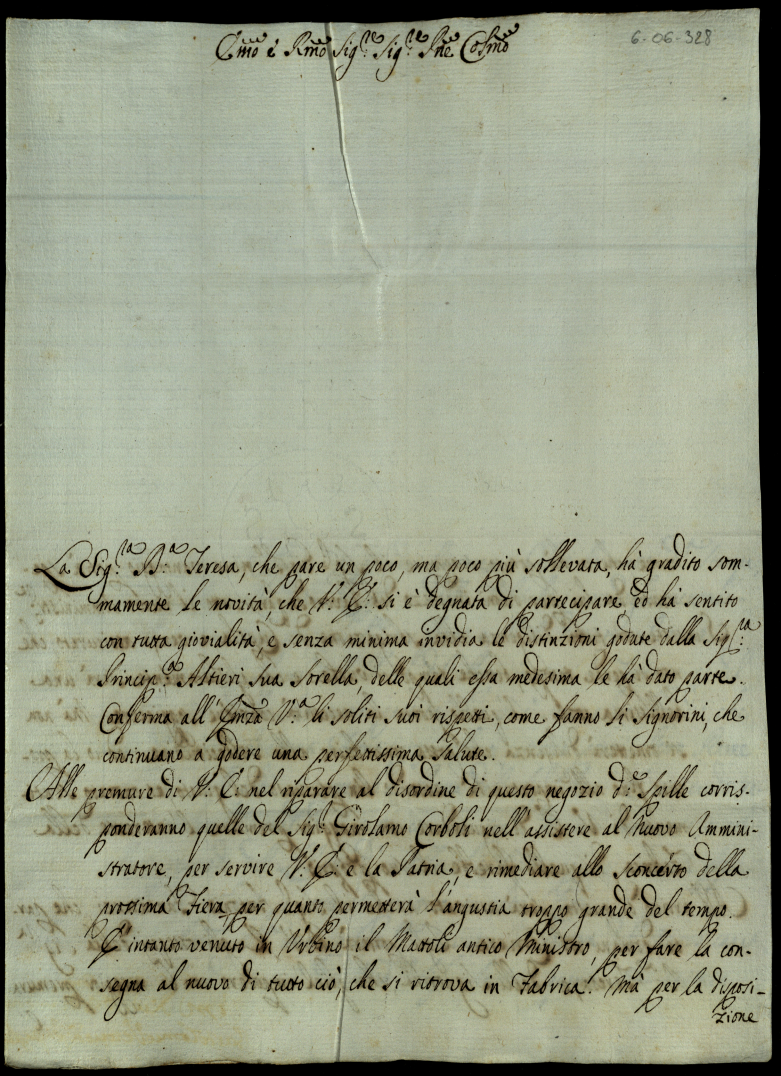 6-06-328
Emo è Rmo Sigre Sigre Pne Colmo
La Sigra Ba Teresa, che pare un poco, ma poco più sollevata, hà gradito som-
mamente le novità, che V: E: si è degnata di partecipare ed hà sentito
con tutta giovialità, e senza minima invidia le distinzioni godute dalla Sigra:
Princip:a Altieri sua sorella, delle quali essa medesima le hà dato parte.
Conferma all'Emza V:a li soliti suoi rispetti, come fanno li Signorini, che
continuano a godere una perfettissima salute.
Alle premure di V: E: nel riparare al disordine di questo negozio d:e Spille corris-
ponderanno quelle del Sigr Girolamo Corboli nell'assistere al nuovo Ammini-
stratore, per servire V: E: e la Patria, e rimediare allo sconcerto della
prossima Fiera, per quanto permetterà l'angustia troppo grande del tempo.
E' intanto venuto in Urbino il Mattoli antico Ministro, per fare la con-
segna al nuovo di tutto ciò, che si ritrova in Fabrica. Mà per la disposi-
zione